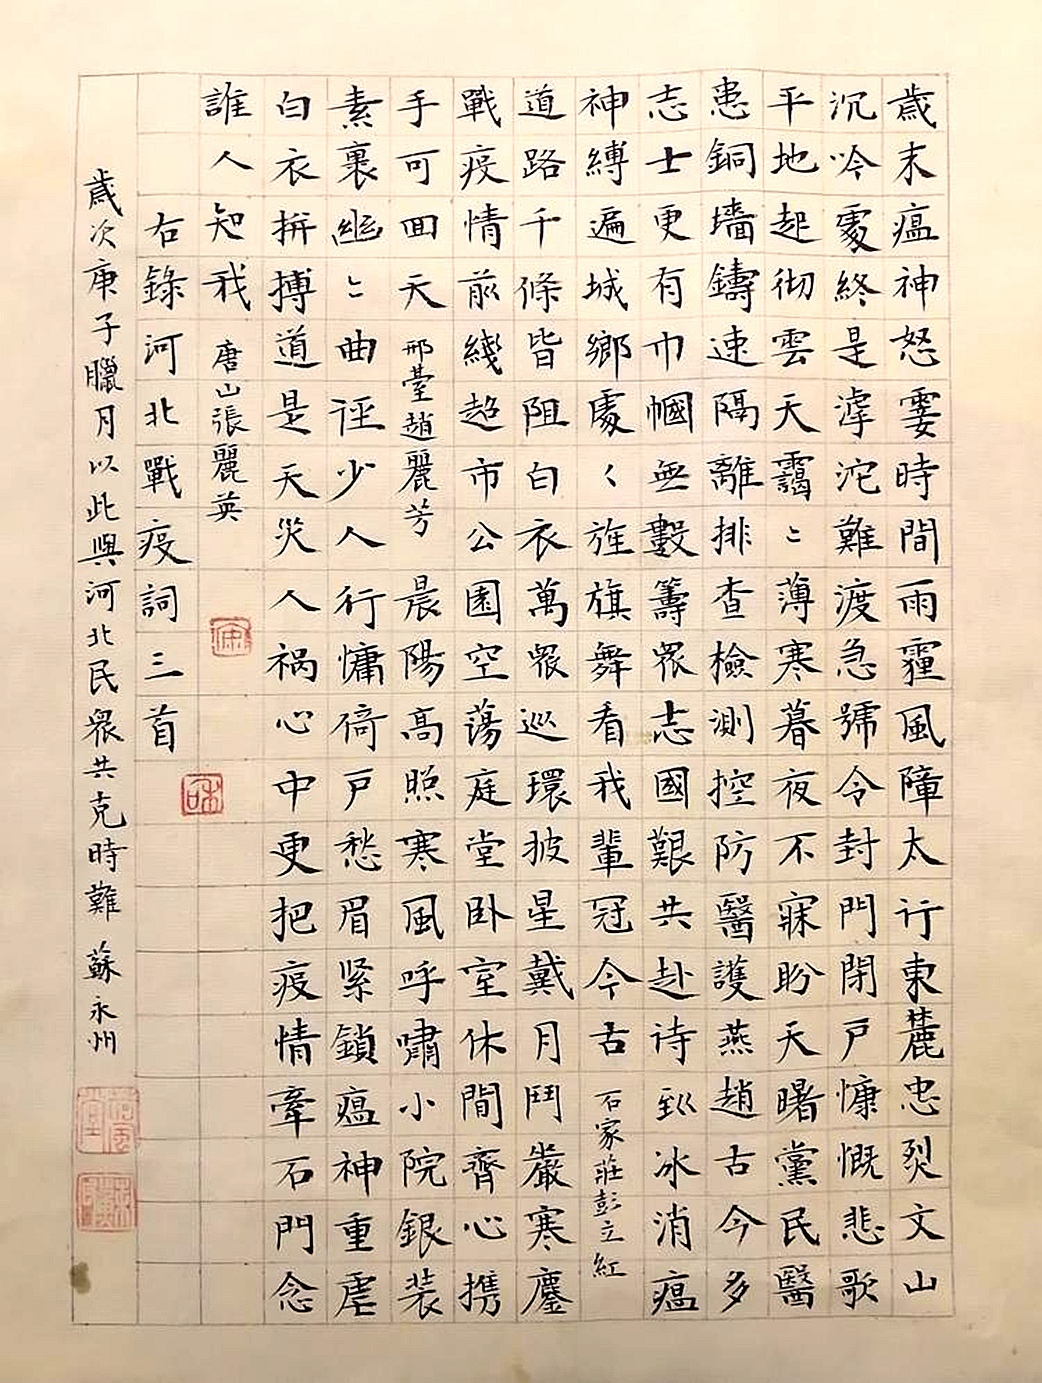 歲末瘟神怒霎時間雨霾風障太行東麓忠烈文山
沉吟處終是滹沱難渡急號令封門閉戶慷慨悲歌
平地起彻雲天靄〻薄寒暮夜不寐盼天曙黨民醫
患銅墻鑄速隔離排查檢測控防醫護燕趙古今多
志士更有巾幗無數籌眾志國艱共赴诗到冰消瘟
神縛遍城鄉處〻旌旗舞看我輩冠今古 石家莊彭立紅
道路千條皆阻白衣萬眾巡環披星戴月鬥嚴寒鏖
戰疫情前綫超市公園空蕩庭堂卧室休閒齊心携
手可回天 邢臺趙麗芳 晨陽高照寒風呼嘯小院銀装
素裹幽〻曲径少人行慵倚戸愁眉紧鎖瘟神重虐
白衣拚搏道是天災人祸心中更把疫情牽石門念
誰人知我 唐山張麗英
右錄河北戰疫詞三首
歲次庚子臘月以此與河北民眾共克時難 蘇永州